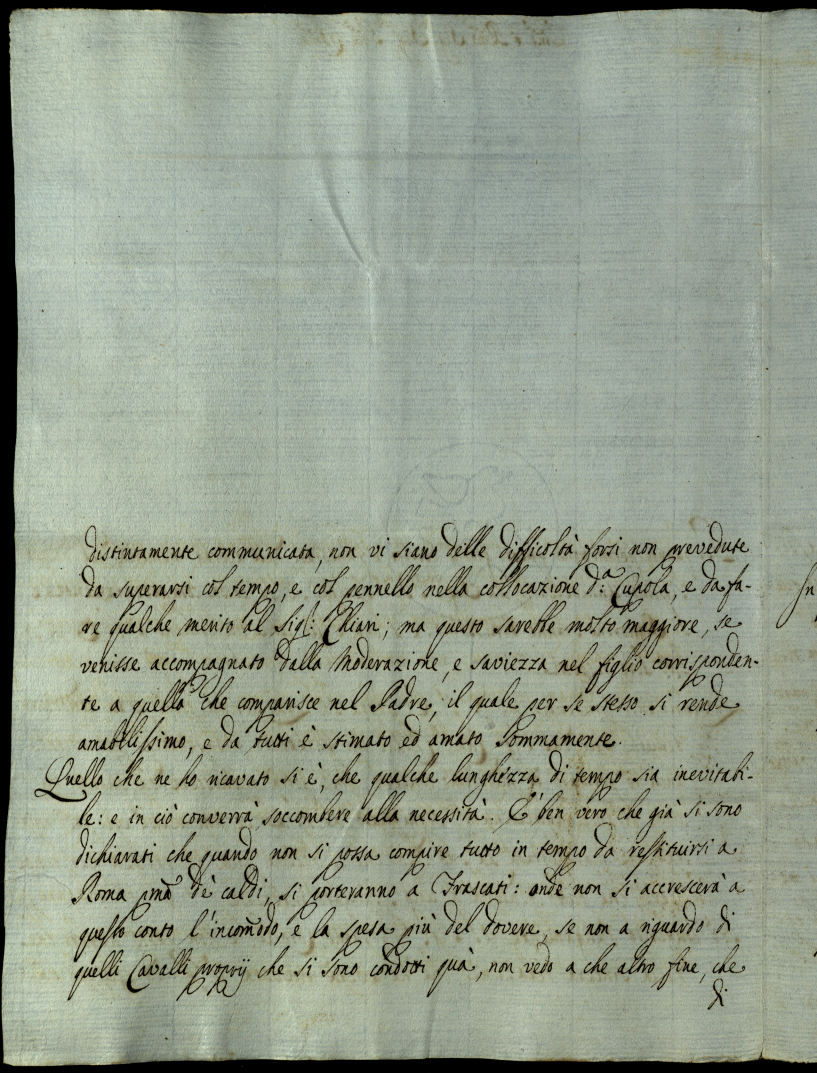 distintamente communicata, non vi siano delle difficoltà forsi non prevedute
da superarsi col tempo, e col pennello nella collocazione d.ª Cupola, e da fa-
re qualche merito al Sig.r: Chiari; ma questo sarebbe molto maggiore, se
venisse accompagnato dalla Moderazione, e saviezza nel figlio corrisponden-
te a quella che comparisce nel Padre, il quale per se stesso si rende
amabilissimo, e da tutti è stimato ed amato sommamente.
Quello che ne ho ricavato si è, che qualche lunghezza di tempo sia inevitabi-
le: e in ciò converrà soccombere alla necessità. E' ben vero che già si sono
dichiarati che quando non si possa compire tutto in tempo da restituirsi a
Roma pmã dè caldi, si porteranno a Frascati: onde non si accrescerà a
questo conto l'incom̃odo, e la spesa più del dovere, se non a riguardo di
quelli Cavalli proprij che si sono condotti quà, non vedo a che altro fine, che
di
In